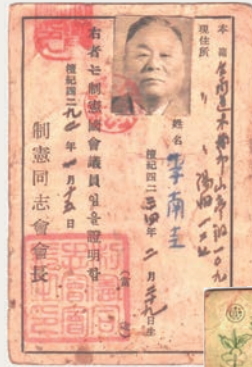 本籍 全南道木浦市山亭洞一〇九
現住所 〃 〃 陽洞一二
姓名 李南圭
檀紀四二三四年二月二十九日生
右者는制憲國會議員임을證明함
檀紀四二九 年一月十五日
制憲同志會會長